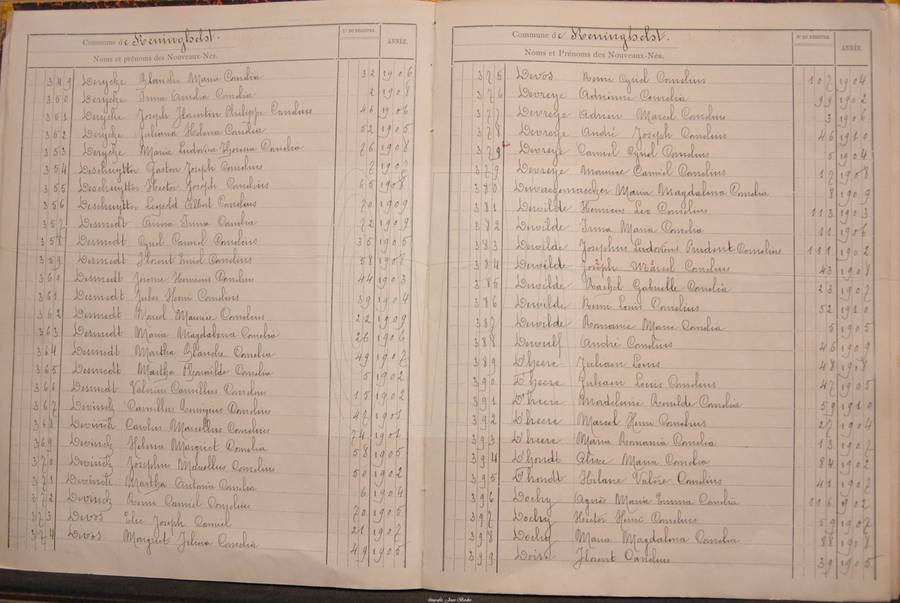 Commune de Reninghelst.
Noms et prénoms des Nouveaux-Nés.
Nº DU REGISTRE.
ANNÉE.
349 Derycke Blanche Maria Cornelia 32 1906
350 Derycke Irma Cornelia 2 1908
351 Derycke Joseph Florentin Philippe Cornelius 46 1906
352 Derycke Juliana Helena Cornelia 52 1905
353 Derycke Maria Ludovica Cornelia 76 1908
354 Deschuytter Gaston Joseph Cornelius 7
355 Deschuytter Hector Joseph Cornelius 65 1908
356 Deschuytter Leopold Albert Cornelius 70 1909
357 Desmedt Anna Irma Cornelia 72 1909
358 Desmedt Cyriel Camiel Cornelius 35 1905
359 Desmedt Florent Emiel Cornelius 58 1908
360 Desmedt Jerome Henricus Cornelius 44 1903
361 Desmedt Jules Henri Cornelius 39 1904
362 Desmedt Marcel Maurice Cornelius 22 1909
363 Desmedt Maria Magdalena Cornelia 26 1906
364 Desmedt Martha Blanche Cornelia 49 1907
365 Desmedt Martha Cornelia 5 1902
366 Desmedt Valerius Camillus Cornelius 15 1902
367 Devinck Camillus Cornelius 47 1901
368 Devinck Carolus Marcellus Cornelius 74 1901
369 Devinck Helena Margriet Cornelia 58 1905
370 Devinck Josephus Marcellus Cornelius 50 1902
371 Devinck Martha Antonia Cornelia 6 1904
372 Devinck Remi Camiel Cornelius 70 1905
373 Devos Elie Joseph Camiel 21 1907
374 Devos Margriet Julma Cornelia 49 1905
Commune de Reninghelst.
Noms et Prénoms des Nouveaux-Nés.
Nº DU REGISTRE.
ANNÉE.
375 Devos Remi Cyriel Cornelius 107 1904
376 Devreye Adrienne Cornelia 99 1902
377 Devreye Adrien Marcel Cornelius 3 1906
378 Devreye André Joseph Cornelius 46 1910
379 Devreye Camiel Cyriel Cornelius 5 1904
379 Devreye Maurice Camiel Cornelius 17 1908
380 Dewaegenaecker Maria Magdalena Cornelia 8 1909
381 Dewilde Henricus Leo Cornelius 113 1903
382 Dewilde Irma Maria Cornelia 11 1906
383 Dewilde Josephus Ludovicus Prudent Cornelius 111 1902
384 Dewilde Joseph Marcel Cornelius 43 1908
385 Dewilde Rachel Gabrielle Cornelia 23 1907
386 Dewilde Remi Louis Cornelius 52 1910
387 Dewilde Romanie Marie Cornelia 5 1905
388 Dewulf André Cornelius 46 1909
389 D'heere Julien Louis 48
390 D'heere Juliaan Louis Cornelius 47 1905
391 D'heere Madeleine Romilde Cornelia 59 1910
392 D'heere Marcel Henri Cornelius 27 1904
393 D'heere Maria Romania Cornelia 13 1907
394 D'hondt Alice Maria Cornelia 84 1902
395 D'hondt Hilaire Valère Cornelius 41 1907
396 Dochy Agnès Maria Emma Cornelia 116 1902
397 Dochy Hector Henri Cornelius 59 1907
398 Dochy Maria Magdalena Cornelia 88 1908
399 Doise Florent Cornelius 39 1905